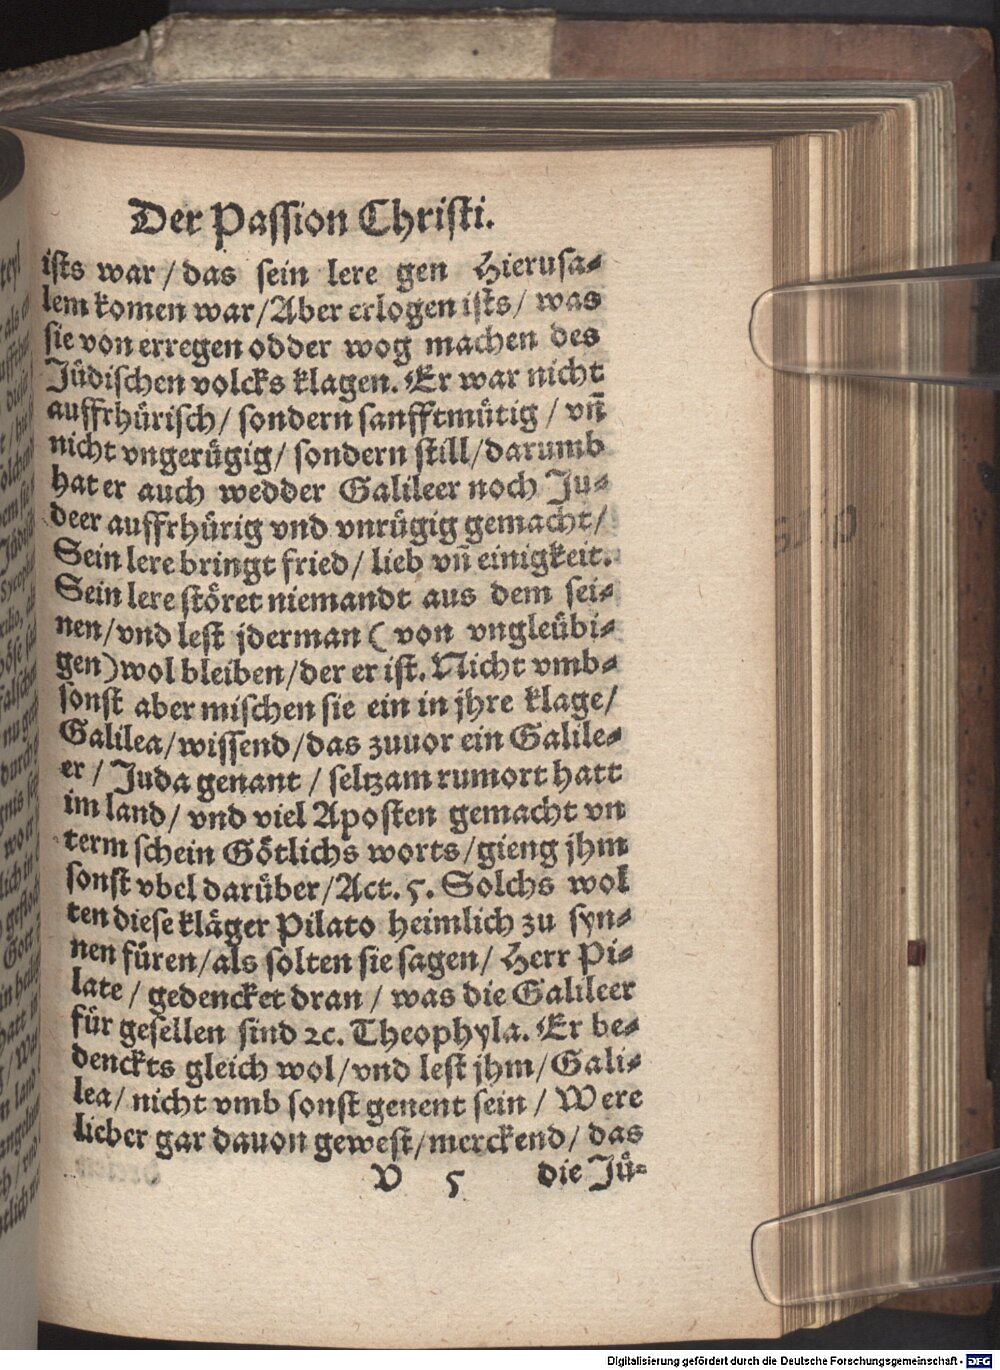 Der Passion Christi.
ists war / das sein lere gen Hierusa-
lem komen war / Aber erlogen ists / was
sie von erregen odder wog machen des
Jüdischen volcks klagen. Er war nicht
auffrhürisch / sondern sanfftmütig / vñ
nicht vngerügig / sondern still / darumb
hat er auch wedder Galileer noch Ju-
deer auffrhürig vnd vnrügig gemacht /
Sein lere bringt fried / lieb vñ einigkeit.
Sein lere störet niemandt aus dem sei-
nen / vnd lest jderman ( von vngleübi-
gen) wol bleiben / der er ist. Nicht vmb-
sonst aber mischen sie ein in jhre klage /
Galilea / wissend / das zuuor ein Galile-
er / Juda genant / seltzam rumort hatt
im land / vnd viel Aposten gemacht vn
term schein Götlichs worts / gieng jhm
sonst vbel darüber / Act. 5. Solchs wol
ten diese kläger Pilato heimlich zu syn-
nen füren / als solten sie sagen / Herr Pi-
late / gedencket dran / was die Galileer
für gesellen sind ꝛc. Theophyla. Er be-
denckts gleich wol / vnd lest jhm / Gali-
lea / nicht vmb sonst genent sein / Were
lieber gar dauon gewest / merckend / das
V 5 die Jü-
Digitalisierung gefördert durch die Deutsche Forschungsgemeinschaft - DFG